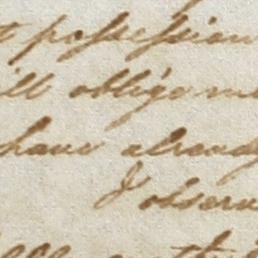 possession
will oblige me
have already
I observe